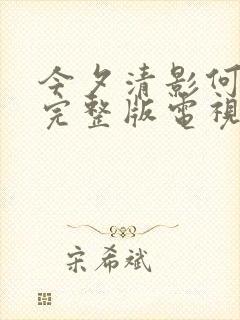 今夕清影何
完整版電視
宋希斌